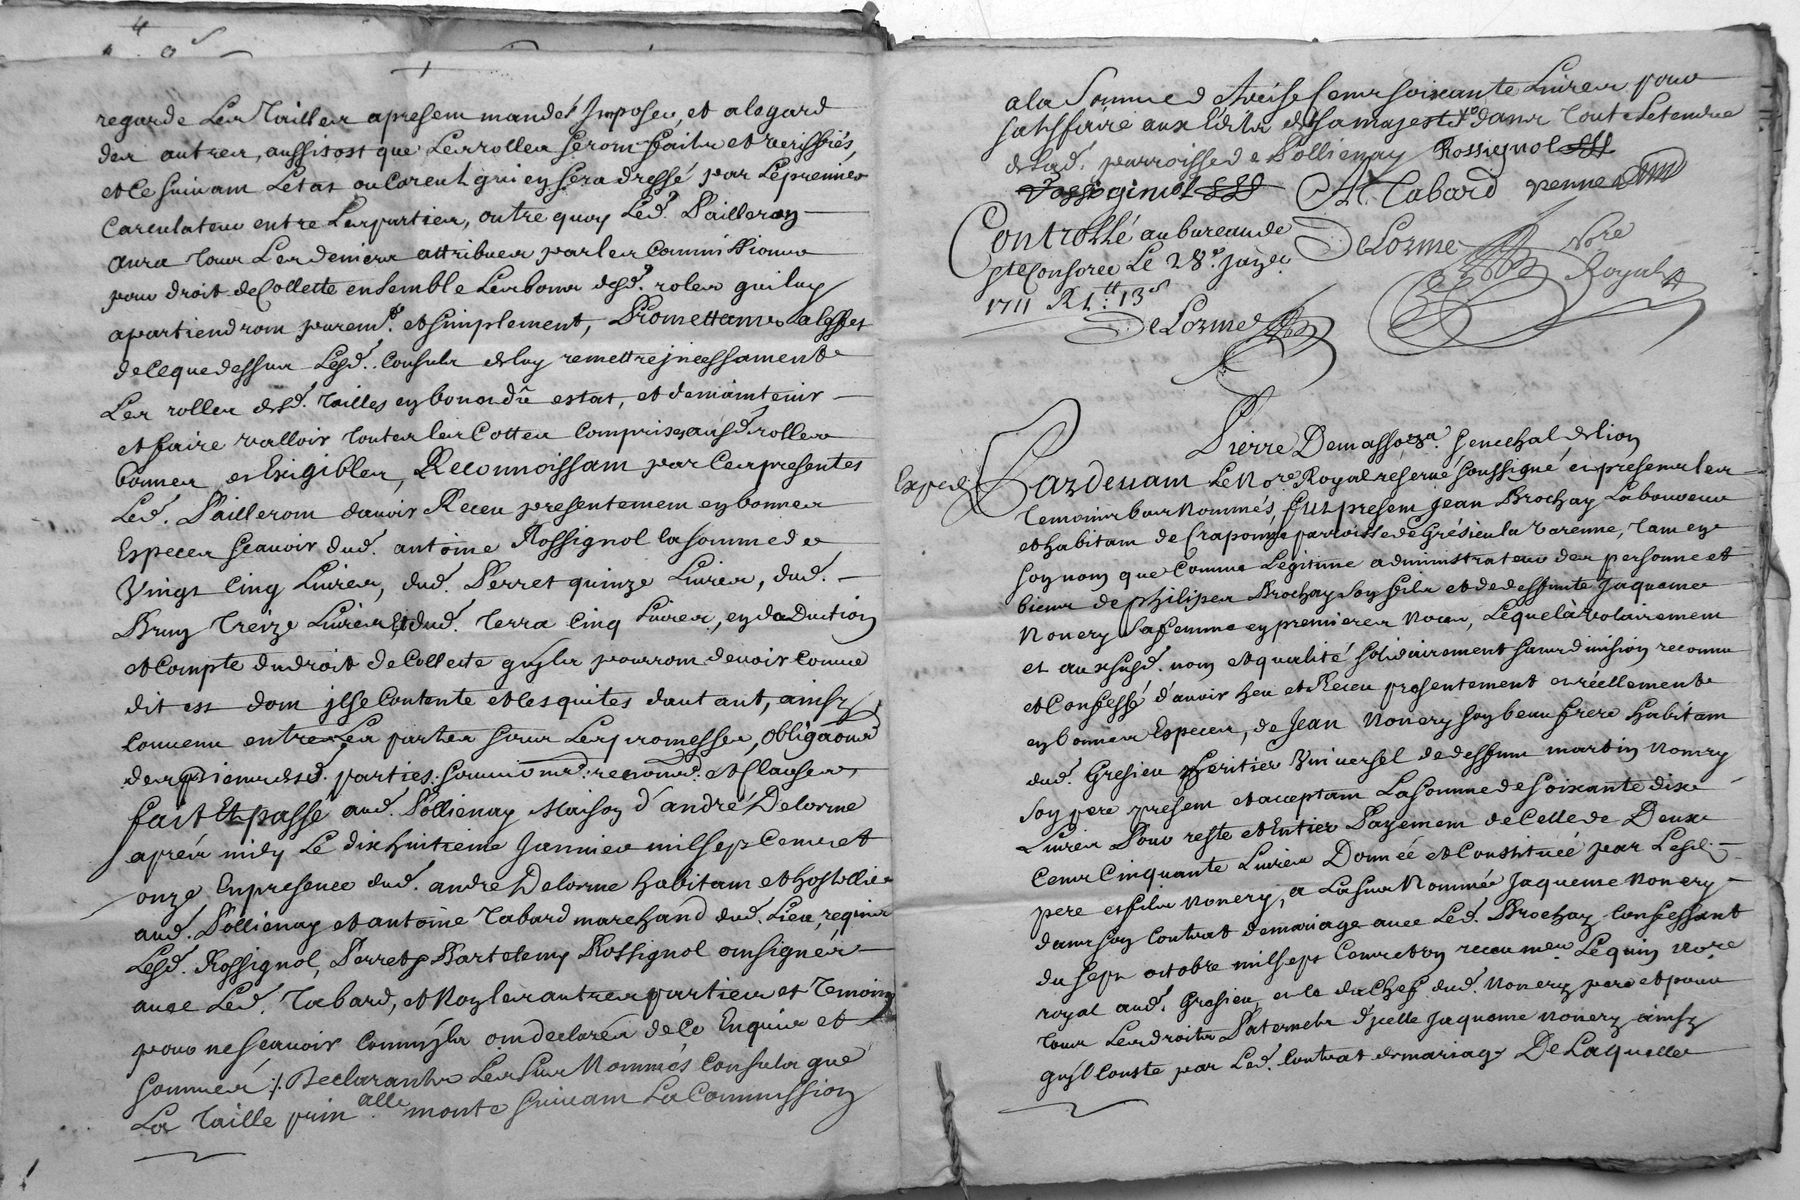 regarde Les Tailles apresent mandés Imposez, et alegard
des autres, aussitost que Les rolles seront faits et veriffiés,
et ce suivant Letat ou Carcul qui en sera dressé par Le premier
Carculateur entre Les parties, outre quoy Led. Pailleron
aura tous Les deniers attribuez par les Commissions
pour droit de Collette ensemble Les bons desd. roles qui luy
apartiendront purem.t et simplement, Promettants alesffet
de Ceque dessus Lesd. Consuls de luy remettre jncessament
Les rolles desd. Tailles en bon et dû estat, et de maintenir
et faire valloir toutes les Cottes Comprises ausd. rolles
bonnes et Exigibles, Reconnoissant par Ces presentes
Led. Pailleron davoir Receu presentement en bonnes
Especes scavoir dud. antoine Rossignol la somme de
Vingt Cinq Livres, dud. Perret quinze Livres, dud.
Brun Treize Livres Et dud. Terra Cinq Livres, en deDuction
et Compte du droit de Collette qu'ils pourront devoir Comme
dit est dont jl se Contente et les quites dautant, ainsy
Convenu entre Les parties sous Les promesses, obligaons
des biens desd. parties, soumions, renons. et Clauses,
fait Et passé aud. Pollienay Maison d'andré Delorme
aprés midy Le dix huitieme Janvier mil sept Cents et
onze, En presence dud. andré Delorme habitant et hostellier
aud. Pollienay et antoine Tabard marchand dud. Lieu, requis
Lesd. Rossignol, Perret, Bartelemy Rossignol ont signés
avec Led. Tabard, et Non les autres parties et Temoins
pour ne scavoir Comm'jls ont declarés de Ce Enquis et
sommés ⁒ Declarants Les sus Nommés Consuls que
La Taille prin alle monte suivant La Commission
ala Somme de Treise Cents soixante Livres pour
satisffaire aux Edits de sa majesté dans Tout Letendue
de lad. parroisse de Pollienay Rossignol
Rossignol At. Tabard perret
Controllé au bureau de DeLorme Nore
ste Consorce Le 28e. Janer. Royal
1711 R 1tt 13s
DeLorme
Pierre Demasso sgr. senechal de lion
Exped. Pardevant Le Nore. Royal reservé soussigné et presens les
Temoins bas Nommés, fut present Jean Brochay Laboureur
et habitant de Craponne parroisse de Grésieu la varenne, Tant en
son nom que Comme Legitime administrateur des personne et
biens de Philipes Brochay son fils et de deffunte Jaqueme
Nonery sa femme en premieres Noces, Lequel à volairement
et aux susd. nom et qualité solidairement sans division reconnu
et Confessé d'avoir heu et Receu presentement et réellement
en bonnes Especes, de Jean Nonery son beau frere habitant
dud. Gresieu heritier Universel de deffunt martin Nonery
son pere present et acceptant La somme de soixante dix
Livres Pour reste et Entier Payement de Celle de Deux
Cents Cinquante Livres Donnée et Constituée par Lesd.
pere et fils Nonery, a La sus Nommée Jaqueme Nonery
dans son Contrat de mariage avec Led. Brochay Confessant
du sept octobre mil sept Cents et un receu mer. Lequin Nore.
royal aud. Gresieu, et le du Chef dud. Nonery pere et pour
tous Les droits Paternels d'jcelle Jaqueme Nonery ainsy
qu'jl Conste par Led. Contrat de mariage De Laquelle